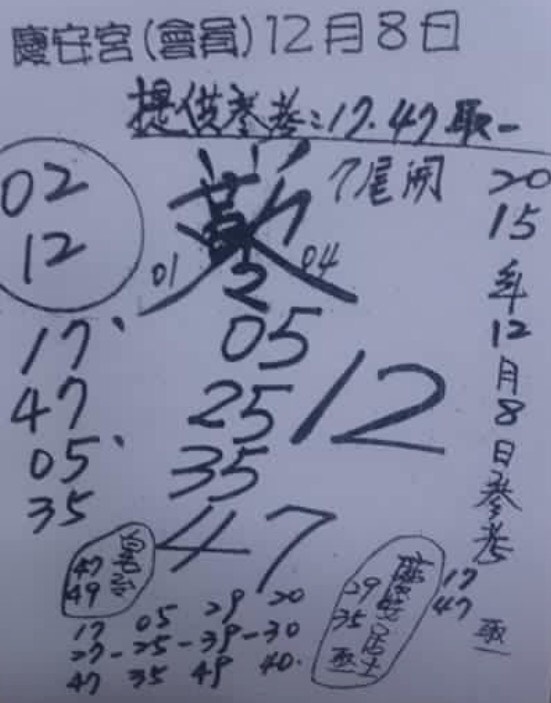 慶安宮(會員)12月8日
提供參考:17.47取一
7尾開
02
12
01
2
04
17、
47
05、
35
05
25
35
12
47
2015年12月8日參考
17
47
取一
47
49
17 05 29 20
27-25-39-30
47 35 49 40.
29
35
取